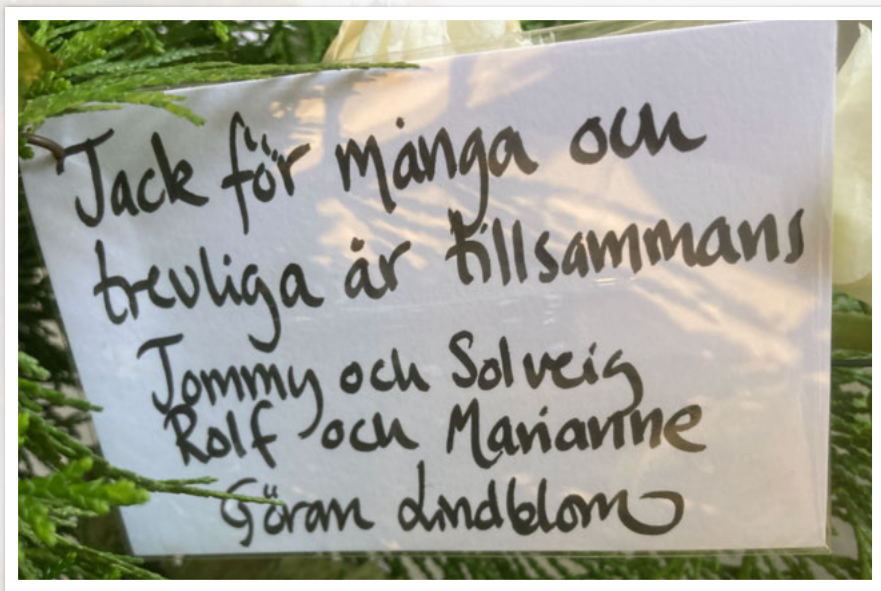 Tack för många och
trevliga år tillsammans
Tommy och Solveig
Rolf och Marianne
Göran Lindblom